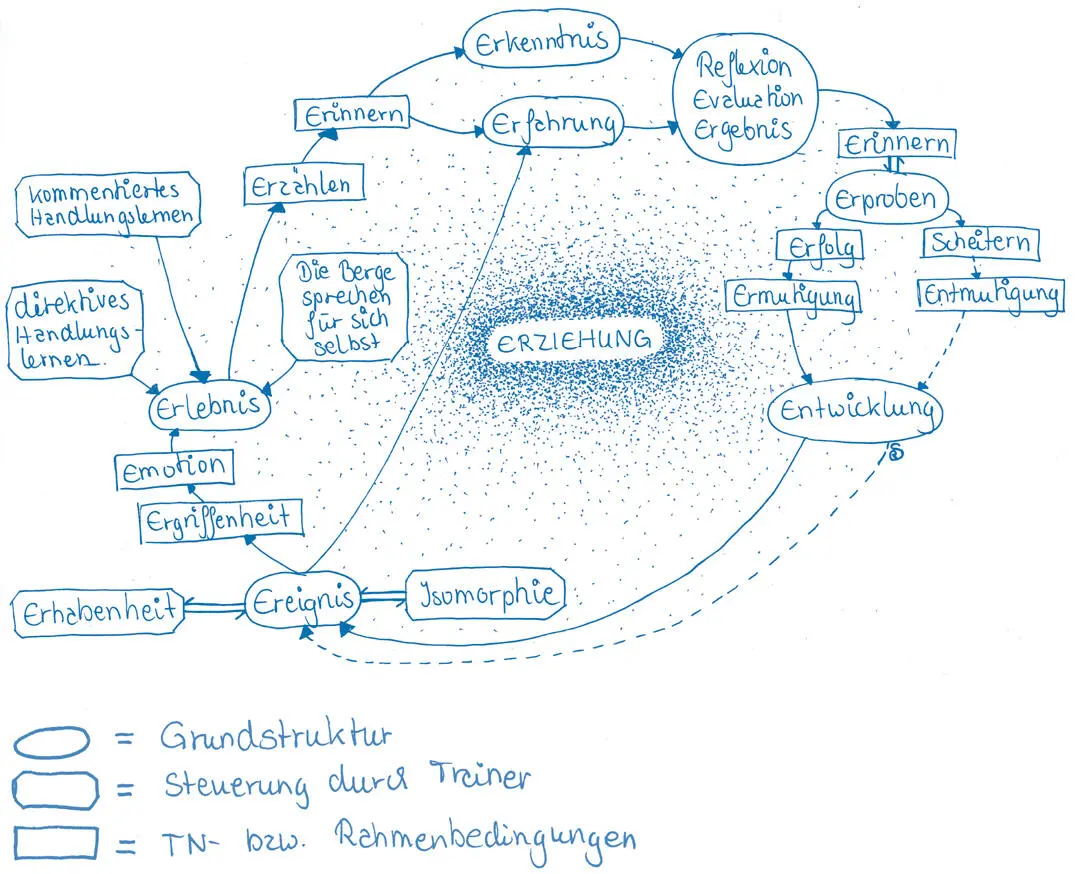 Erkenntnis
Reflexion
Evaluation
Ergebnis
Erinnern
Erfahrung
Erinnern
Erzählen
Erproben
kommentiertes
Handlungslernen
Erfolg
Scheitern
Die Berge
sprechen
für sich
selbst
direktives
Handlungs-
lernen
Ermutigung
Entmutigung
ERZIEHUNG
Erlebnis
Entwicklung
Emotion
Ergriffenheit
Erhabenheit
Ereignis
Isomorphie
= Grundstruktur
= Steuerung durch Trainer
= TN- bzw. Rahmenbedingungen